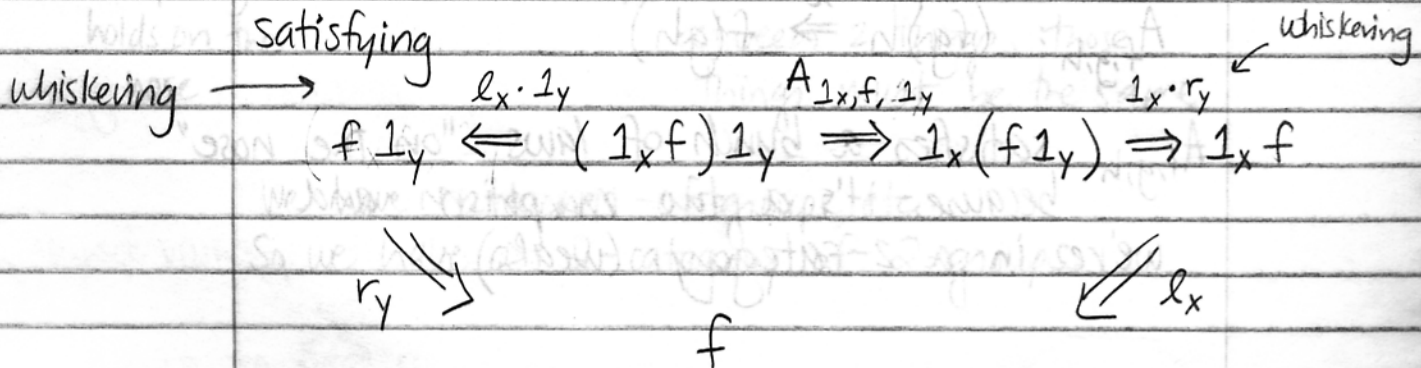 satisfying
whiskering
whiskering →
ℓₓ · 1_y A_{1ₓ, f, 1_y} 1ₓ · r_y
f 1_y ⇐ ( 1ₓ f ) 1_y ⇒ 1ₓ ( f 1_y ) ⇒ 1ₓ f
r_y ℓₓ
f